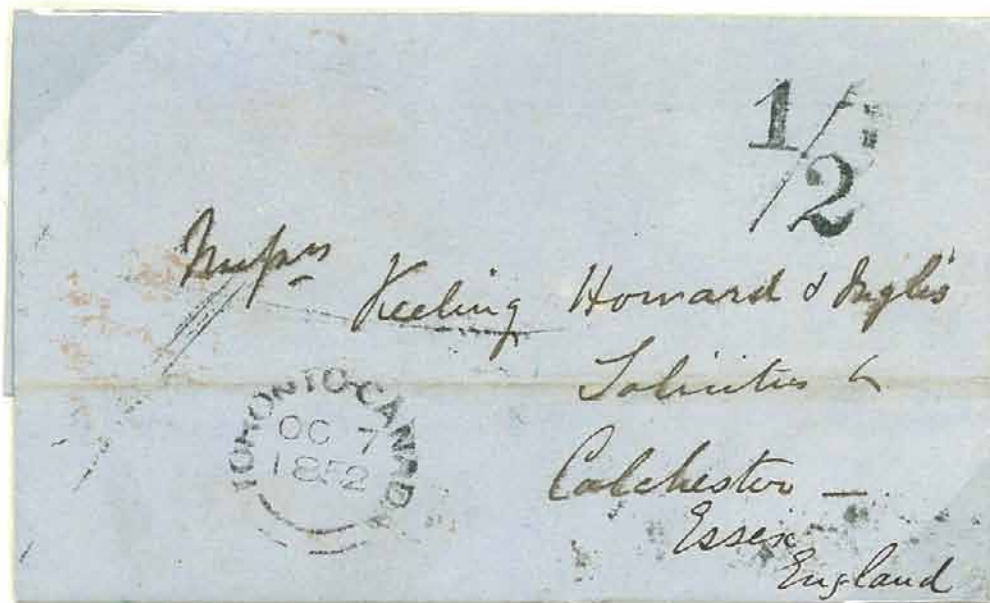 1/2
Messrs Keeling Howard & Inglis
Solicitors &
Colchester —
Essex
England
TORONTO-CANADA
OC 7
1852